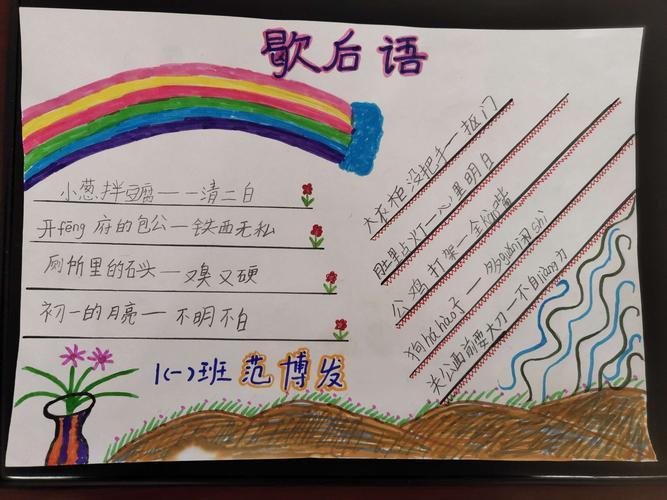 歇后语
小葱拌豆腐——一清二白
开fēng府的包公—铁西无私
厕所里的石头—又臭又硬
初一的月亮—不明不白
1(一)班 范博发
大衣柜没把手—抠门
肚里点灯—心里明白
公鸡打架—全kào嘴
狗
关公面前耍大刀—不自liàng力